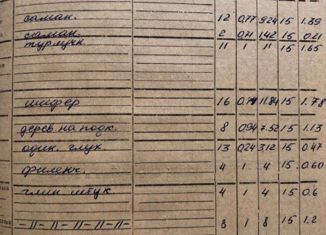 саман. 12 0,77 9,24 15 1.39
саман. 2 0,71 1,42 15 0.21
турлучн. 11 1 11 15 1.65
шифер 16 0,74 11.84 15 1.78
дерев. на подк. 8 0,94 7.52 15 1.13
один. глух 13 0,24 3,12 15 0.47
филенч. 4 1 4 15 0.60
глин. штук. 4 1 4 15 0.6
-||-||-||-||-||- 8 1 8 15 1.2